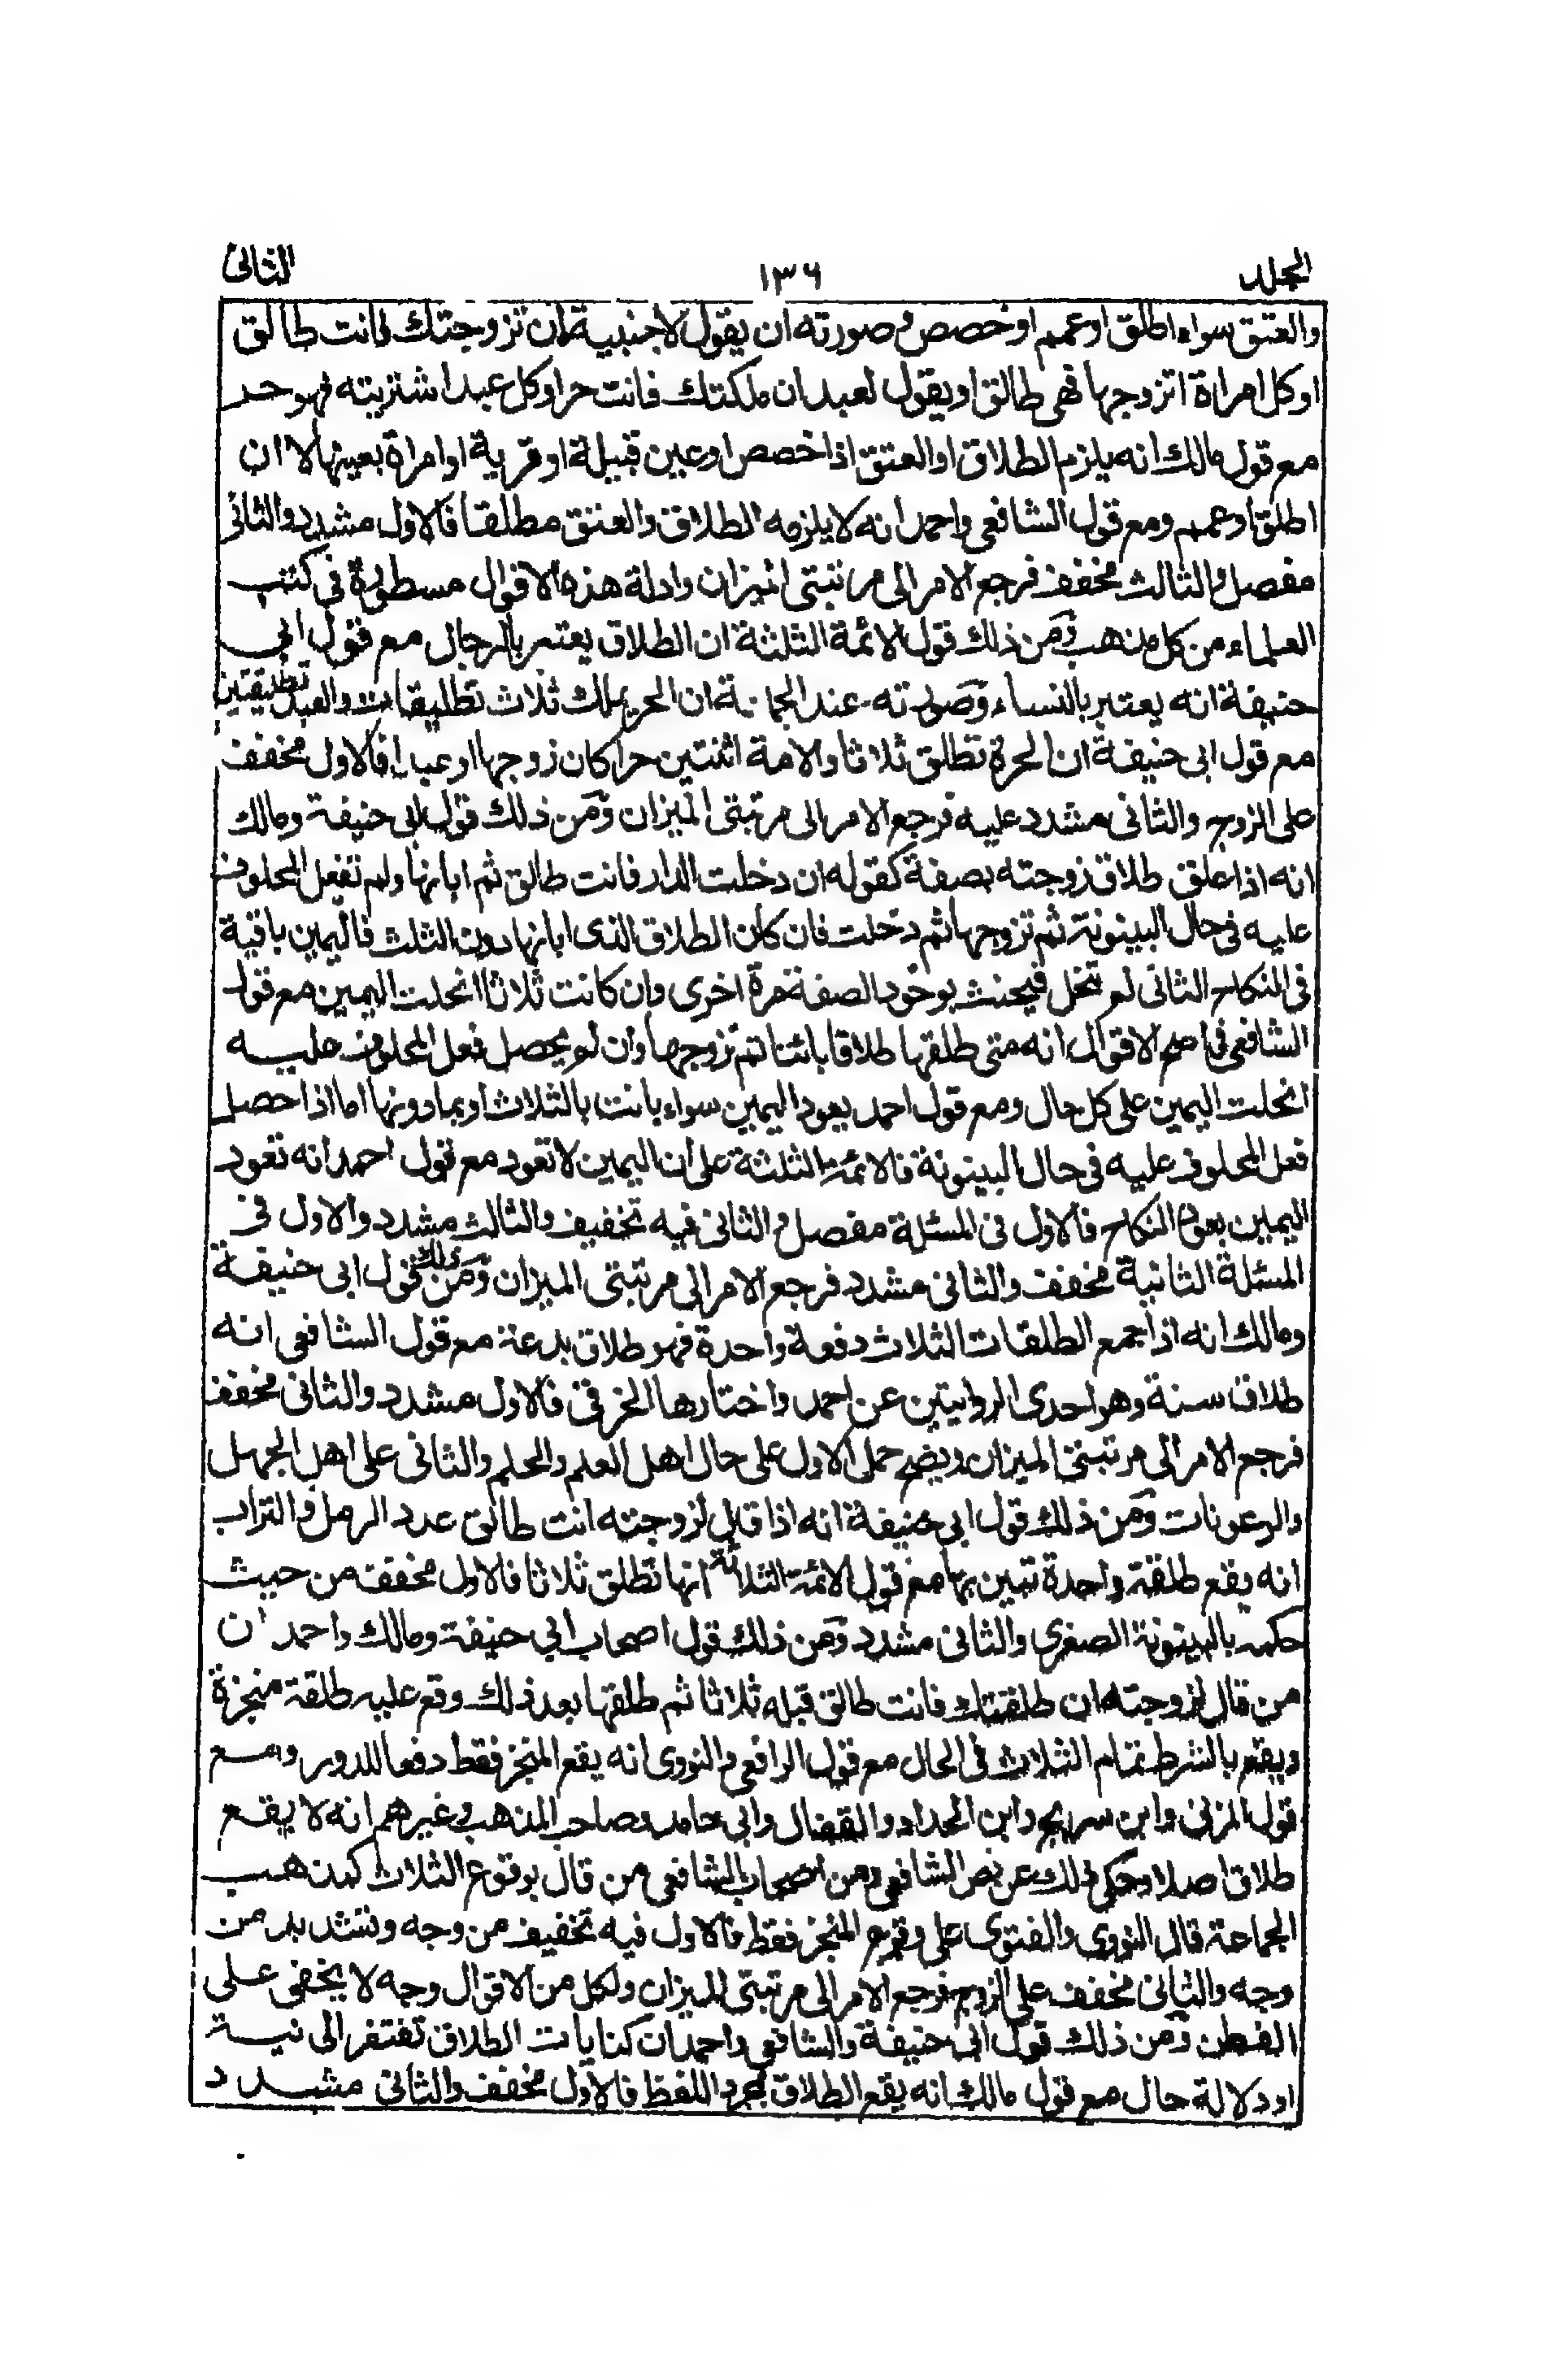 المجلد ١٣٦ الثانى
والعتق سواء اطلق او عمم او خصص وصورته ان يقول لاجنبية ان تزوجتك فانت طالق
او كل امراة اتزوجها فهى طالق او يقول لعبد ان ملكتك فانت حر او كل عبد اشتريته فهو حر
مع قول مالك انه يلزم الطلاق او العتق اذا خصص او عين قبيلة او قرية او امراة بعينها لا ان
اطلق او عمم ومع قول الشافعى واحمد انه لا يلزمه الطلاق والعتق مطلقا فالاول مشدد والثانى
مفصل والثالث مخفف فرجع الامر الى مرتبتى الميزان وادلة هذه الاقوال مسطورة فى كتب
العلماء من كل مذهب ومن ذلك قول الائمة الثلثة ان الطلاق يعتبر بالرجال مع قول ابى
حنيفة انه يعتبر بالنساء وصورته عند الجماعة ان الحر يملك ثلاث تطليقات والعبد تطليقتين
مع قول ابى حنيفة ان الحرة تطلق ثلاثا والامة اثنتين حرا كان زوجها او عبدا فالاول مخفف
على الزوج والثانى مشدد عليه فرجع الامر الى مرتبتى الميزان ومن ذلك قول ابى حنيفة ومالك
انه اذا علق طلاق زوجته بصفة كقوله ان دخلت الدار فانت طالق ثم ابانها ولم تفعل المحلوف
عليه فى حال البينونة ثم تزوجها ثم دخلت فان كان الطلاق الذى ابانها دون الثلث فاليمين باقية
فى النكاح الثانى لم تنحل فيحنث بوجود الصفة مرة اخرى وان كانت ثلاثا انحلت اليمين مع قول
الشافعى فى اصح الاقوال انه متى طلقها طلاقا بائنا ثم تزوجها وان لم يحصل فعل المحلوف عليه
انحلت اليمين على كل حال ومع قول احمد يعود اليمين سواء بانت بالثلاث او بما دونها اما اذا حصل
فعل المحلوف عليه فى حال البينونة فالائمة الثلثة على ان اليمين لا تعود مع قول احمد انه تعود
اليمين بعود النكاح فالاول فى المسئلة مفصل والثانى فيه تخفيف والثالث مشدد والاول فى
المسئلة الثانية مخفف والثانى مشدد فرجع الامر الى مرتبتى الميزان ومن ذلك قول ابى حنيفة
ومالك انه اذا جمع الطلقات الثلاث دفعة واحدة فهو طلاق بدعة مع قول الشافعى انه
طلاق سنة وهو احدى الروايتين عن احمد واختارها الخرقى فالاول مشدد والثانى مخفف
فرجع الامر الى مرتبتى الميزان ويصح حمل الاول على حال اهل العلم والحلم والثانى على اهل الجهل
والرعونات ومن ذلك قول ابى حنيفة انه اذا قال لزوجته انت طالق عدد الرمل والتراب
انه يقع طلقة واحدة تبين بها مع قول الائمة الثلاثة انها تطلق ثلاثا فالاول مخفف من حيث
حكمه بالبينونة الصغرى والثانى مشدد ومن ذلك قول اصحاب ابى حنيفة ومالك واحمد ان
من قال لزوجته ان طلقتك فانت طالق قبله ثلاثا ثم طلقها بعد ذلك وقع عليه طلقة منجزة
ويقع بالشرط تمام الثلاث فى الحال مع قول الرافعى والنووى انه يقع المنجز فقط دفعا للدور ومع
قول المزنى وابن سريج وابن الحداد والقفال وابى حامد وصاحب المذهب وغيرهم انه لا يقع
طلاق اصلا وحكى ذلك عن نص الشافعى ومن اصحاب الشافعى من قال بوقوع الثلاث كمذهب
الجماعة قال النووى والفتوى على وقوع المنجز فقط فالاول فيه تخفيف من وجه وتشديد من
وجه والثانى مخفف على الزوج فرجع الامر الى مرتبتى الميزان ولكل من الاقوال وجه لا يخفى على
الفطن ومن ذلك قول ابى حنيفة والشافعى واحمد ان كنايات الطلاق تفتقر الى نية
او دلالة حال مع قول مالك انه يقع الطلاق بمجرد اللفظ فالاول مخفف والثانى مشدد